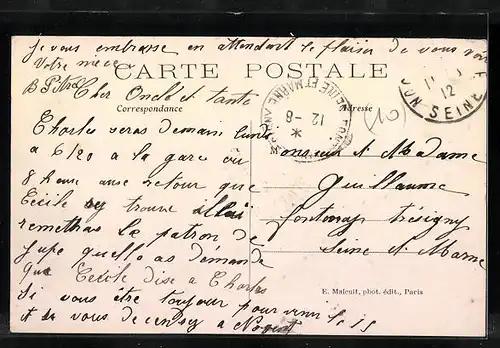 je vous embrasse en attendant le plaisir de vous voir
Votre niece
CARTE POSTALE
Cher Oncle et tante
Correspondance
Adresse
Charles seras demain lundi
a 6/20 a la gare ou
8 heure une retour que
Cecile sy trouve
remettras la patron de
jupe quello as demande
Que Cecile dise a Charles
Si vous être toujour pour venir le 15
a Nogent
Monsieur et Madame
Guillaume
fontenay trésigny
Seine et Marne
12 - 8
SEINE ET MARNE
12
SEINE
10
E. Malcuit, phot. édit., Paris